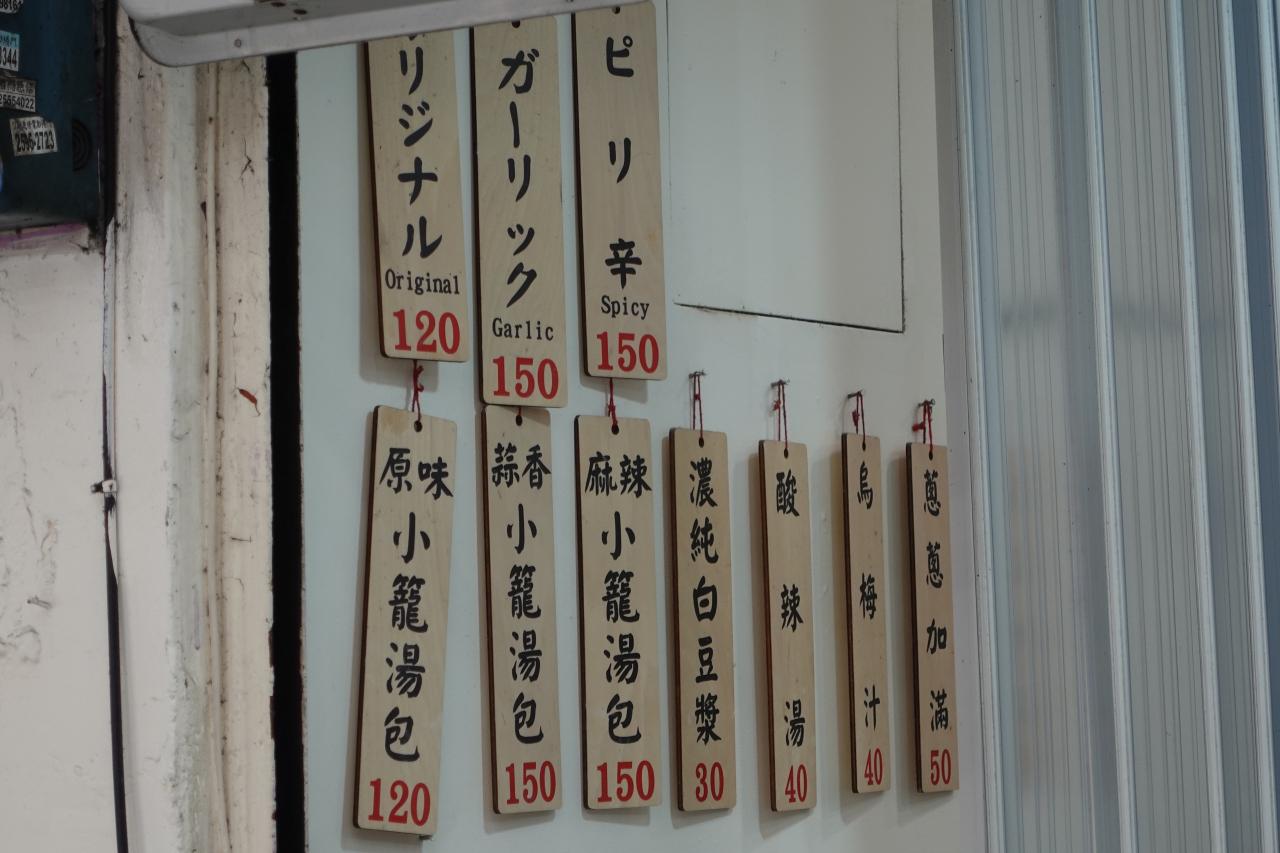 リジナル
Original
120
ガーリック
Garlic
150
ピリ辛
Spicy
150
原味
小籠湯包
120
蒜香
小籠湯包
150
麻辣
小籠湯包
150
濃純白豆漿
30
酸辣湯
40
烏梅汁
40
蔥蔥加滿
50
2596-2723